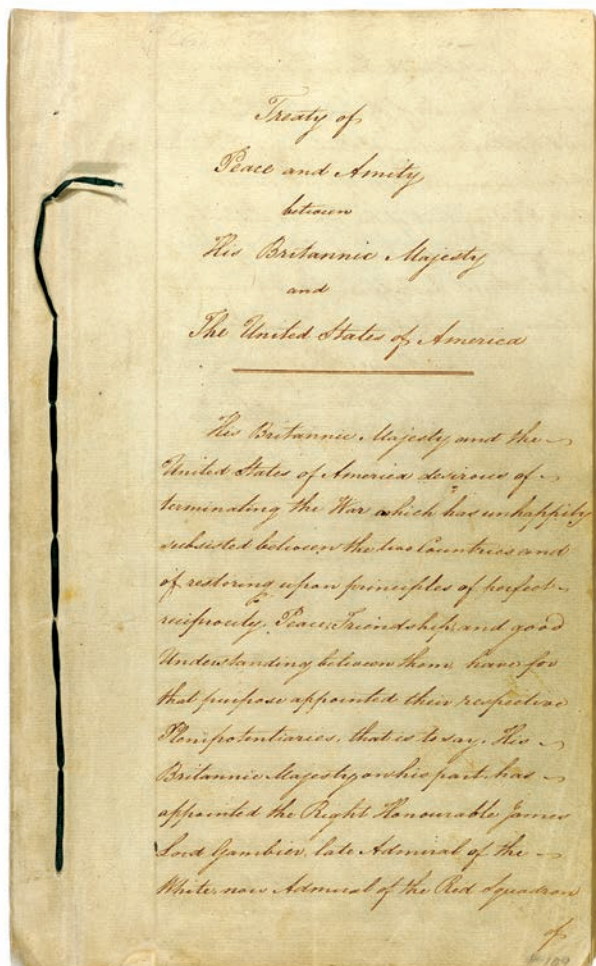 Treaty of
Peace and Amity
between
His Britannic Majesty
and
The United States of America
His Britannic Majesty and the
United States of America desirous of
terminating the War which has unhappily
subsisted between the two Countries and
of restoring upon principles of perfect
reciprocity, Peace, Friendship, and good
Understanding between them, have for
that purpose appointed their respective
Plenipotentiaries, that is to say, His
Britannic Majesty on his part has
appointed the Right Honourable James
Lord Gambier, late Admiral of the
White, now Admiral of the Red Squadron
of